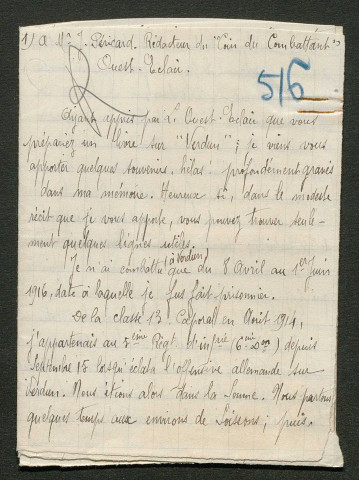 1) A Mr J. Péricard. Rédacteur du "Voix du Combattant"
Ouest-Eclair.
516
Ayant appris par l'Ouest-Eclair que vous
prépariez un livre sur "Verdun"; je viens vous
apporter quelques souvenirs, hélas! profondément gravés
dans ma mémoire. Heureux si, dans le modeste
récit que je vous apporte, vous pouvez trouver seule-
ment quelques lignes utiles.
Je n'ai combattu à Verdun que du 8 Avril au 1er Juin
1916, date à laquelle je fus fait prisonnier.
De la classe 13. Caporal en Août 1914,
j'appartenais au 5ème Régt d'infrie (6ème Don) depuis
Septembre 15 lorsqu'éclata l'offensive allemande sur
Verdun. Nous étions alors dans la Somme. Nous partons
quelques temps aux environs de Soissons; puis.